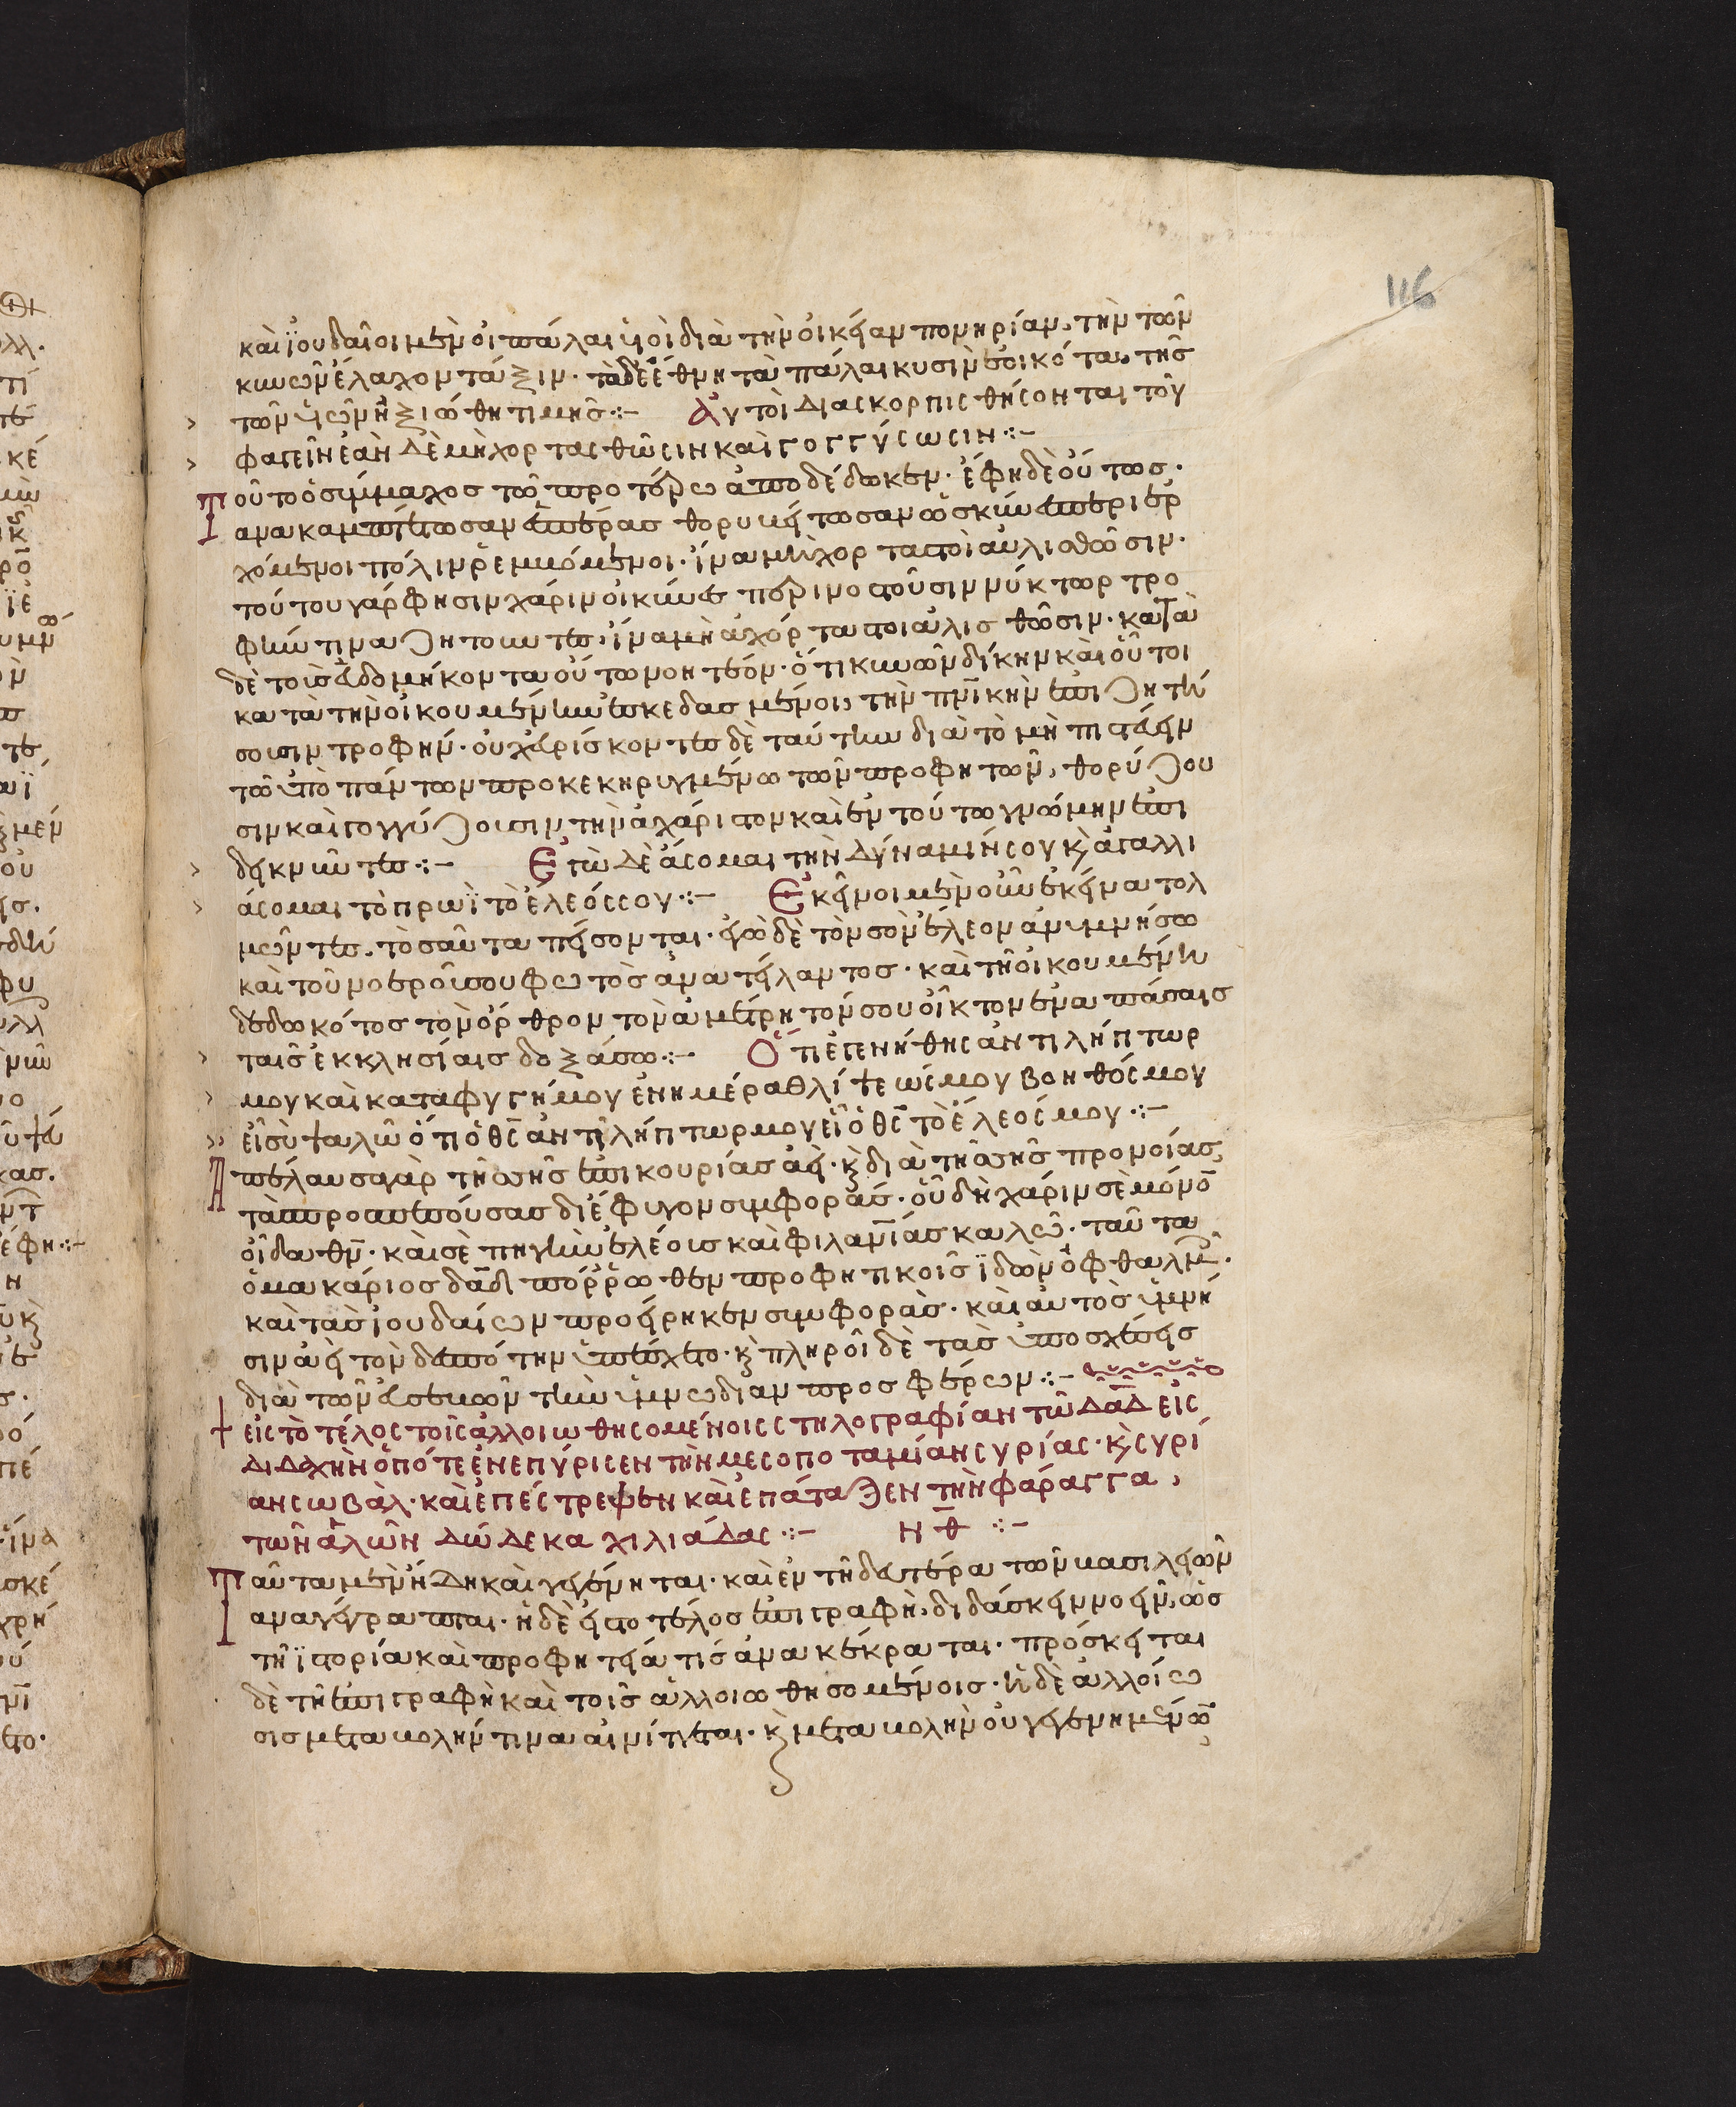 καὶ ϊουδαῖοι μὲν οἱ πάλαι υἱοὶ διὰ τὴν οἰκείαν πονηρίαν, τὴν τῶν
κυνῶν ἔλαχον τάξιν· τὰ δὲ ἔθνη τὰ πάλαι κυσὶν ἐοικότα, τῆς
τῶν υἱῶν ἠξιώθη τιμῆς :- Αὐτοὶ διασκορπισθήσονται τοῦ
φαγεῖν ἐὰν δὲ μὴ χορτασθῶσιν καὶ γογγύσωσιν :-
Τοῦτο ὁ σύμμαχος τῶ προτέρω ἀποδέδωκεν· ἔφη δὲ οὕτως·
ἀνακαμπτέτωσαν ἑσπέρας θορυβείτωσαν ὡς κύνες περιερ
χόμενοι πόλιν ῥεμβόμενοι· ἵνα μὴ χορταστοὶ αὐλισθῶσιν·
τούτου γάρ φησιν χάριν οἱ κύνες περινοστοῦσιν νύκτωρ τρο
φήν τινα ζητοῦντες· ἵνα μὴ ἀχόρταστοι αὐλισθῶσιν· κατὰ
δὲ τοὺς ἑβδομήκοντα οὕτω νοητέον· ὅτι κυνῶν δίκην καὶ οὗτοι
κατὰ τὴν οἰκουμένην ἐσκεδασμένοι, τὴν πν̅ικὴν ἐπιζητή
σουσιν τροφήν· οὐχ εὑρίσκοντες δὲ ταύτην διὰ τὸ μὴ πιστεύειν
τῶ ὑπὸ πάντων προκεκηρυγμένω τῶν προφητῶν, θορύζου
σιν καὶ γογγύζουσιν τὴν ἀχάριστον καὶ ἐν τούτω γνώμην ἐπι
δεικνῦντες :- Ἐγὼ δὲ ἄσομαι τὴν δύναμίν σου ϗ ἀγαλλι
άσομαι τὸ πρωῒ τὸ ἔλεός σου :- Ἐκεῖνοι μὲν οὖν ἐκεῖνα τολ
μῶντες, τοσαῦτα πείσονται· ἐγὼ δὲ τὸν σὸν ἔλεον ἀνυμνήσω
καὶ τοῦ νοεροῦ σου φωτὸς ἀνατείλαντος· καὶ τῆ οἰκουμένη
δεδωκότος τὸν ὄρθρον τὸν ἀμέτρητόν σου οἶκτον ἐν ἁπάσαις
ταῖς ἐκκλησίαις δοξάσω :- Ὅτι ἐγενήθης ἀντιλήπτωρ
μου καὶ καταφυγή μου ἐν ἡμέρα θλίψεώς μου βοηθός μου
εἶ σὺ ψαλῶ ὅτι ὁ θ̅ς̅ ἀντιλήπτωρ μου εἶ ὁ θ̅ς̅ τὸ ἔλεός μου :-
Ἀπέλαυσα γὰρ τῆς σῆς ἐπικουρίας ἀεὶ· ϗ διὰ τῆς σῆς προνοίας,
τὰς προσπεσούσας διέφυγον συμφορὰς· οὗ δὴ χάριν σὲ μόνο̅
οἶδα θ̅ν̅· καὶ σὲ πηγὴν ἐλέους καὶ φιλαν̅ίας καλῶ· ταῦτα
ὁ μακάριος δα̅δ̅ πόρρωθεν προφητικοῖς ϊδὼν ὀφθαλμοῖς·
καὶ τὰς ϊουδαίων προείρηκεν συμφορὰς· καὶ αὐτὸς ὑμνή
σιν ἀεὶ τὸν δεσπότην ὑπέσχετο· ϗ πληροῖ δὲ τὰς ὑποσχέσεις
διὰ τῶν εὐσεβῶν τὴν ὑμνωδίαν προσφέρων :-
εἰς τὸ τέλος τοῖς ἀλλοιωθησομένοις στηλογραφίαν τῶ δα̅δ̅ εἰς
διδαχὴν ὁπότε ἐνεπύρισεν τὴν μεσοποταμίαν συρίας· ϗ συρί
αν σωβὰλ· καὶ ἐπέστρεψεν καὶ ἐπάταξεν τὴν φάραγγα,
τῶν ἁλῶν δώδεκα χιλιάδας :- ν̅θ̅ :-
Ταῦτα μὲν ἤδη καὶ γεγένηται· καὶ ἐν τῆ δευτέρα τῶν βασιλειῶν
ἀναγέγραπται· ἡ δὲ εἰς τὸ τέλος ἐπιγραφὴ, διδάσκει νοεῖν, ὡς
τῆ ϊστορία καὶ προφητεία τίς ἀνακέκραται· πρόσκειται
δὲ τῆ ἐπιγραφῆ καὶ τοῖς ἀλλοιωθησομένοις· ἡ δὲ ἀλλοίω
σις μεταβολήν τινα αἰνίττεται· ϗ μεταβολὴν οὐ γεγενημένω̅
116